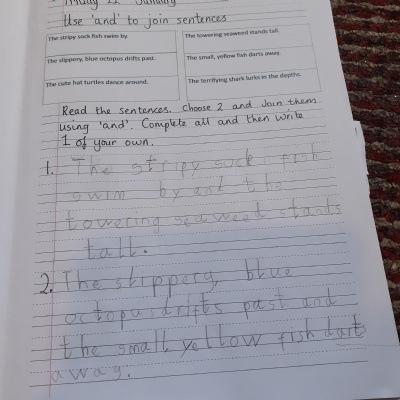 Friday 22 January
Use 'and' to join sentences
The stripy sock fish swim by.
The towering seaweed stands tall.
The slippery, blue octopus drifts past.
The small, yellow fish darts away.
The cute hat turtles dance around.
The terrifying shark lurks in the depths.
Read the sentences. Choose 2 and join them
using 'and'. Complete all and then write
1 of your own.
1. The stripy sock fish
swim by and the
towering seaweed stands
tall.
2. The slippery, blue
octopus drifts past and
the small yellow fish darts
away.